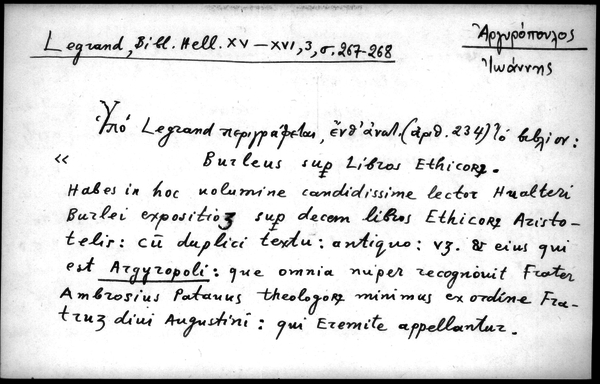 Legrand, Bibl. Hell. XV – XVI, 3, σ. 267-268
Ἀργυρόπουλος
Ἰωάννης
Ὑπό Legrand περιγράφεται, ἔνθ' ἀνωτ. (ἀριθ. 234) τό βιβλίον:
« Burleus suꝑ Libros Ethicorꝝ.
Habes in hoc uolumine candidissime lector Hualteri
Burlei expositioꝫ suꝑ decem libros Ethicorꝝ Aristo-
telis: cū duplici textu: antiquo: vꝫ. & eius qui
est Argyropoli: que omnia nuper recognouit Frater
Ambrosius Patauus theologorꝝ minimus ex ordine Fra-
truꝫ diui Augustini: qui Eremite appellantur.